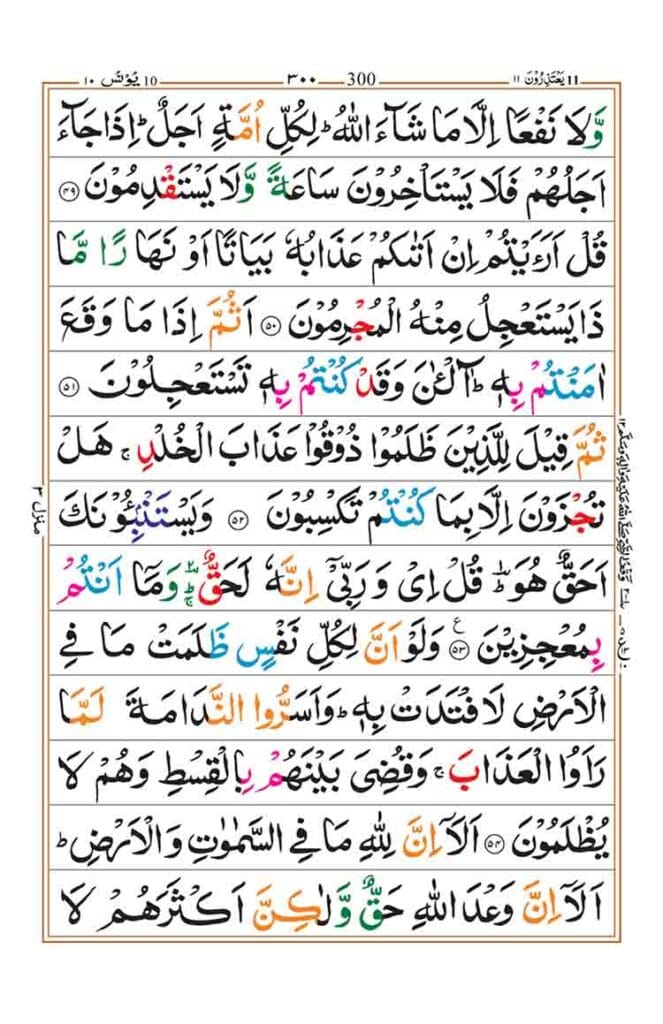 يَعْتَذِرُوْنَ ١١ 11 300 ٣٠٠ 10 يُوْنُس ١٠
وَّلَا نَفْعًا اِلَّا مَا شَآءَ اللّٰهُؕ لِكُلِّ اُمَّةٍ اَجَلٌؕ اِذَا جَآءَ
اَجَلُهُمْ فَلَا يَسْتَاْخِرُوْنَ سَاعَةً وَّلَا يَسْتَقْدِمُوْنَ ۝۴۹
قُلْ اَرَءَيْتُمْ اِنْ اَتٰىكُمْ عَذَابُهٗ بَيَاتًا اَوْ نَهَارًا مَّا
ذَا يَسْتَعْجِلُ مِنْهُ الْمُجْرِمُوْنَ ۝۵۰ اَثُمَّ اِذَا مَا وَقَعَ
اٰمَنْتُمْ بِهٖؕ آٰلْـٰٔنَ وَقَدْ كُنْتُمْ بِهٖ تَسْتَعْجِلُوْنَ ۝۵۱
ثُمَّ قِيْلَ لِلَّذِيْنَ ظَلَمُوْا ذُوْقُوْا عَذَابَ الْخُلْدِۚ هَلْ
تُجْزَوْنَ اِلَّا بِمَا كُنْتُمْ تَكْسِبُوْنَ ۝۵۲ وَيَسْتَنْۢبِـُٔوْنَكَ
اَحَقٌّ هُوَؕ قُلْ اِىْ وَرَبِّىْۤ اِنَّهٗ لَحَقٌّؕۚ وَمَاۤ اَنْتُمْ
بِمُعْجِزِيْنَ ۝۵۳ع وَلَوْ اَنَّ لِكُلِّ نَفْسٍ ظَلَمَتْ مَا فِى
الْاَرْضِ لَافْتَدَتْ بِهٖؕ وَاَسَرُّوا النَّدَامَةَ لَمَّا
رَاَوُا الْعَذَابَۚ وَقُضِىَ بَيْنَهُمْ بِالْقِسْطِ وَهُمْ لَا
يُظْلَمُوْنَ ۝۵۴ اَلَاۤ اِنَّ لِلّٰهِ مَا فِى السَّمٰوٰتِ وَالْاَرْضِؕ
اَلَاۤ اِنَّ وَعْدَ اللّٰهِ حَقٌّ وَّلٰكِنَّ اَكْثَرَهُمْ لَا
منزل ٣